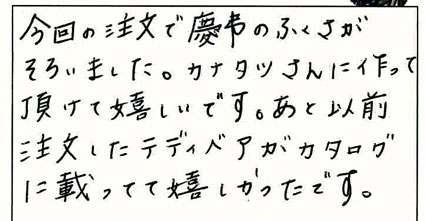 今回の注文で慶弔のふくさが
そろいました。カナタツさんに作って
頂けて嬉しいです。あと以前
注文したテディベアがカタログ
に載ってて嬉しかったです。